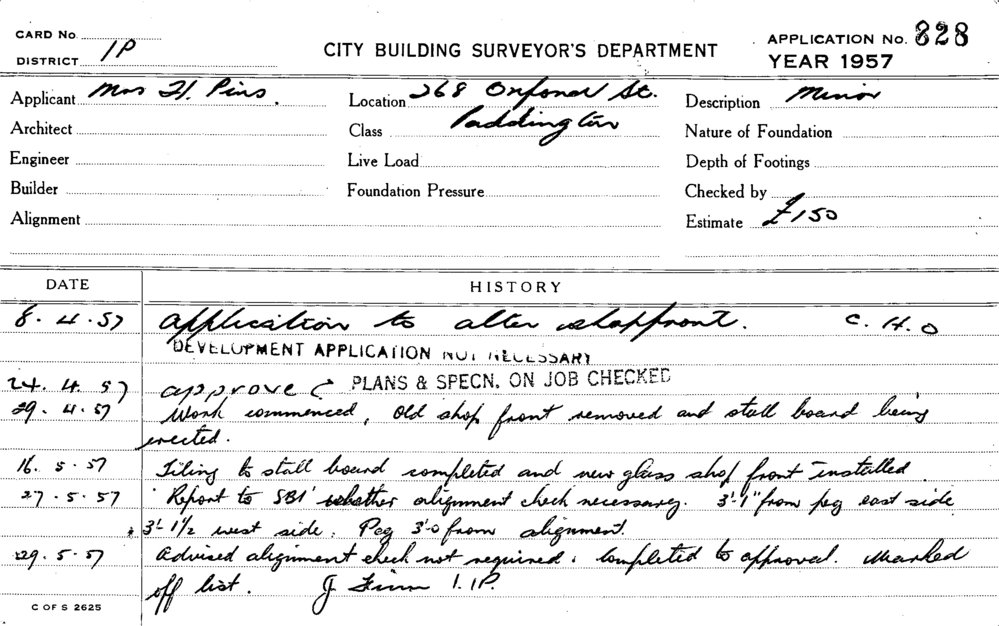 CARD No.
DISTRICT 1P
CITY BUILDING SURVEYOR'S DEPARTMENT
APPLICATION No. 328
YEAR 1957
Applicant Mrs H. Pins. Location 268 Oxford St. Description Minor
Architect Class Paddington Nature of Foundation
Engineer Live Load Depth of Footings
Builder Foundation Pressure Checked by
Alignment Estimate £150
DATE HISTORY
8.4.57 Application to alter shopfront. C.H.O
DEVELOPMENT APPLICATION NOT NECESSARY
24.4.57 approved PLANS & SPECN. ON JOB CHECKED
29.4.57 Work commenced, old shop front removed and stall board being
erected.
16.5.57 Tiling to stall board completed and new glass shop front installed
27.5.57 Report to SBI whether alignment check necessary. 3'-1" from peg east side
3'-1½ west side. Peg 3'-0 from alignment.
29.5.57 Advised alignment check not required. Completed to approval. Marked
off list. J Finn 1.1P.
C OF S 2625